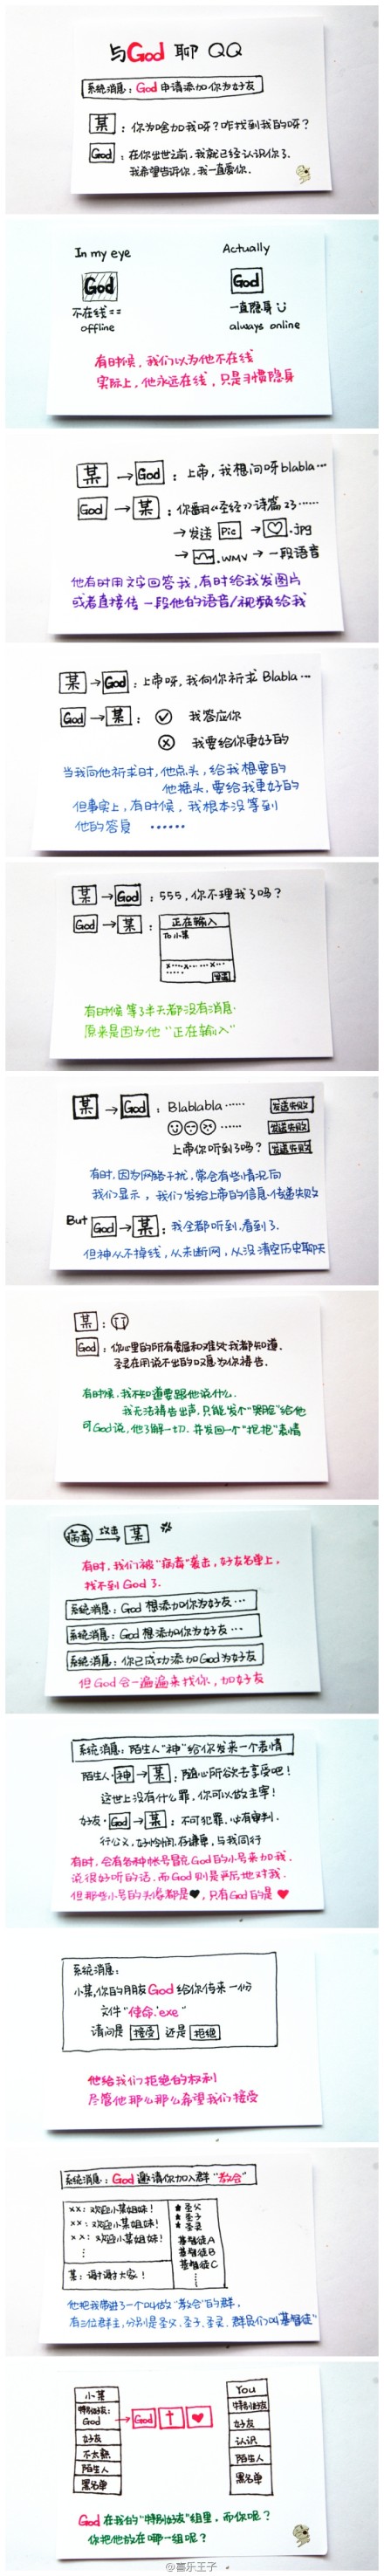 与God聊 QQ
系统消息：God申请添加你为好友
某：你为啥加我呀？咋找到我的呀？
God：在你出世之前，我就已经认识你了.
我希望告诉你，我一直爱你.
In my eye
Actually
God
God
不在线==
一直隐身
offline
always online
有时候，我们以为他不在线
实际上，他永远在线，只是习惯隐身
某→God：上帝，我想问呀blabla…
God→某：你翻《圣经》诗篇23……
→发送 Pic→♡.jpg
→.wmv→一段语音
他有时用文字回答我，有时给我发图片
或者直接传一段他的语音/视频给我
某→God：上帝呀，我向你祈求Blabla…
God→某：✓ 我答应你
× 我要给你更好的
当我向他祈求时，他点头，给我想要的
他摇头，要给我更好的
但事实上，有时候，我根本没等到
他的答复 ……
某→God：555，你不理我了吗？
God→某：正在输入
To小某
发送
有时候等了半天都没有消息.
原来是因为他“正在输入”
某→God：Blablabla…… 发送失败
…… 发送失败
上帝你听到了吗？ 发送失败
有时，因为网络干扰，常会有些情况向
我们显示，我们发给上帝的信息传递失败
But God→某：我全都听到.看到了.
但神从不掉线，从未断网，从没清空历史聊天
某：
God：你心里的所有委屈和难处我都知道.
圣灵在用说不出的叹息为你祷告.
有时候.我不知道要跟他说什么.
我无法祷告出声.只能发个“哭脸”给他
可God说，他了解一切.并发回一个“抱抱”表情
病毒 攻击→ 某
有时，我们被“病毒”袭击，好友名单上，
找不到God了.
系统消息：God想添加你为好友…
系统消息：God想添加你为好友…
系统消息：你已成功添加God为好友
但God会一遍遍来找你，加好友
系统消息：陌生人“神”给你发来一个表情
陌生人·神→某：随心所欲去享受吧！
这世上没有什么罪，你可以做主宰！
好友·God→某：不可犯罪，必有审判.
行公义，好怜悯，存谦卑，与我同行
有时，会有各种帐号冒充God的小号来加我.
说很好听的话.而God则是严厉地对我.
但那些小号的头像都是♥，只有God的是♥
系统消息：
小某，你的朋友God给你传来一份
文件“使命.exe”
请问是 接受 还是 拒绝
他给我们拒绝的权利
尽管他那么那么希望我们接受
系统消息：God邀请你加入群“教会”
××：欢迎小某姐妹！
××：欢迎小某姐妹！
××：欢迎小某姐妹！
⋮
某：谢谢大家！
★圣父
★圣子
★圣灵
基督徒A
基督徒B
基督徒C
⋮
他把我带进了一个叫做“教会”的群，
有三位群主，分别是圣父.圣子.圣灵.群员们叫“基督徒”
小某
特别好友：
God
→God † ♥
好友
不太熟
陌生人
黑名单
You
特别好友
好友
认识
陌生人
黑名单
God在我的“特别好友”组里，而你呢？
你把他放在哪一组呢？
@喜乐王子